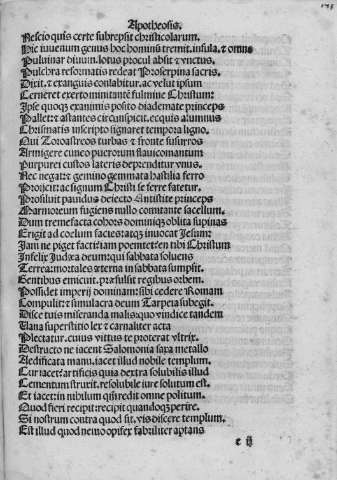 Apotheosis.
Nescio quis certe subrepsit christicolarum.
Hic iuuenum genus hoc hominũ tremit, infula, & omne
Puluinar diuum. lotus procul absit & vnctus.
Pulchra reformatis redeat Proserpina sacris.
Dixit, & exanguis conlabitur, ac velut ipsum
Cerneret exerto minitantẽ fulmine Christum:
Ipse quoqꝫ exanimis posito diademate princeps
Pallet: & astantes circumspicit, ecquis alumnus
Chrismatis inscripto signaret tempora ligno.
Qui Zoroastreos turbas & fronte susurros
Armigere cuneo puerorum flauicomantum
Purpurei custos lateris deprenditur vnus.
Nec negat: & gemino gemmata hastilia ferro
Proiicit: ac signum Christi se ferre fatetur.
Prosiluit pauidus deiecto Antistite princeps
Marmoreum fugiens nullo comitante sacellum.
Dum tremefacta cohors dominiqꝫ oblita supinas
Erigit ad coelum facies: atqꝫ inuocat Iesum:
Iam ne piget facti: iam poenitet: en tibi Christum
Infelix Iudæa deum: qui sabbata soluens
Terrea: mortales æterna in sabbata sumpsit.
Gentibus emicuit, præfulsit regibus orbem.
Possidet imperij dominam: sibi cedere Romam
Compulit: & simulacra deum Tarpeia subegit.
Disce tuis miseranda malis: quo vindice tandem
Vana superstitio lex & carnaliter acta
Plectatur. cuius vittus te proterat vltrix.
Destructo ne iacent Salomonia saxa metallo
Aedificata manu, iacet illud nobile templum.
Cur iacet: artificis quia dextra solubilis illud
Cementum struxit. resolubile iure solutum est.
Et iacet: in nihilum qm̃ redit omne politum.
Quod fieri recipit: recipit quandoqꝫ perire.
Si nostrum contra quod sit, vis discere templum.
Est illud quod nemo opifex fabriliter aptans
e ij